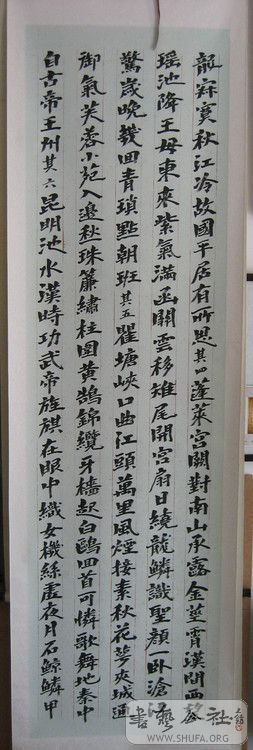 龍寂寞秋江冷故國平居有所思其四蓬萊宮闕對南山承露金莖霄漢間西望
瑤池降王母東來紫氣滿函關雲移雉尾開宮扇日繞龍鱗識聖顏一臥滄江
驚歲晚幾回青瑣點朝班其五瞿塘峽口曲江頭萬里風煙接素秋花萼夾城通
御氣芙蓉小苑入邊秋珠簾繡柱圍黃鵠錦纜牙檣起白鷗回首可憐歌舞地秦中
自古帝王州其六昆明池水漢時功武帝旌旗在眼中織女機絲虛夜月石鯨鱗甲
書藝社
WWW.SHUFA.ORG